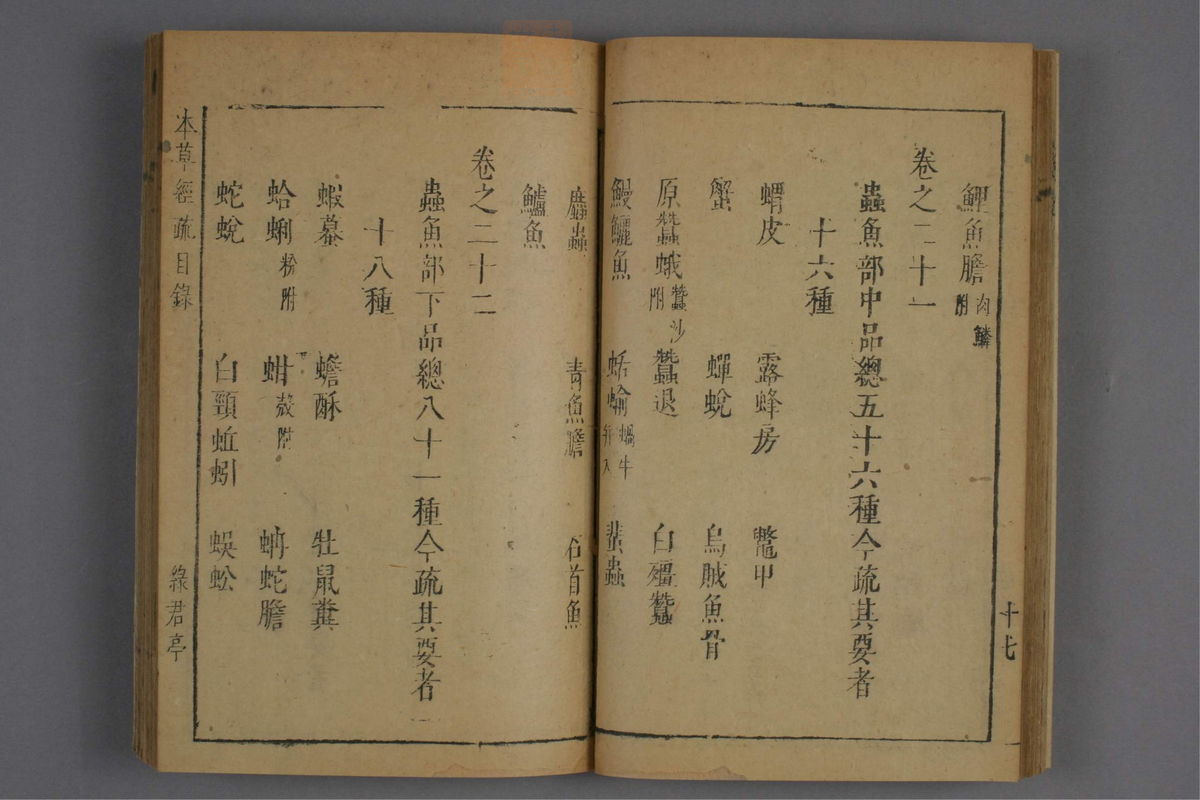 鯉魚膽 肉鱗附
卷之二十一
蟲魚部中品總五十六種今疏其要者
十六種
蝟皮 露蜂房 鼈甲
蟹 蟬蛻 烏賊魚骨
原蠶蛾 蠶沙附 蠶退 白殭蠶
鰻鱺魚 蛞蝓 蝸牛 蜚蟲
䗪蟲 青魚膽 石首魚
鱸魚
卷之二十二
蟲魚部下品總八十一種今疏其要者
十八種
蝦蟇 蟾酥 牡鼠糞
蛤蜊 粉附 蚶 殼附 蚺蛇膽
蛇蛻 白頸蚯蚓 蜈蚣
本草經疏目錄 綠君亭
十七